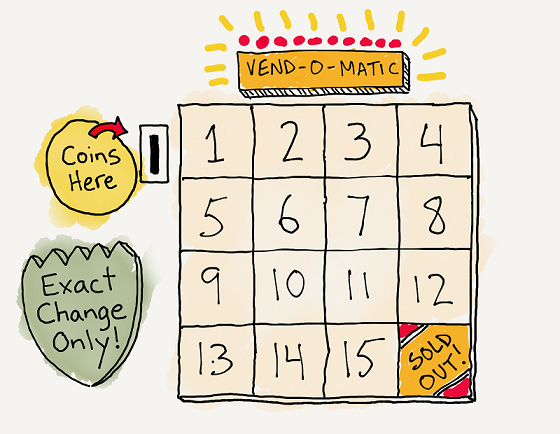 VEND-O-MATIC
Coins
Here
1 2 3 4
5 6 7 8
Exact
Change
Only!
9 10 11 12
13 14 15 SOLD
OUT!